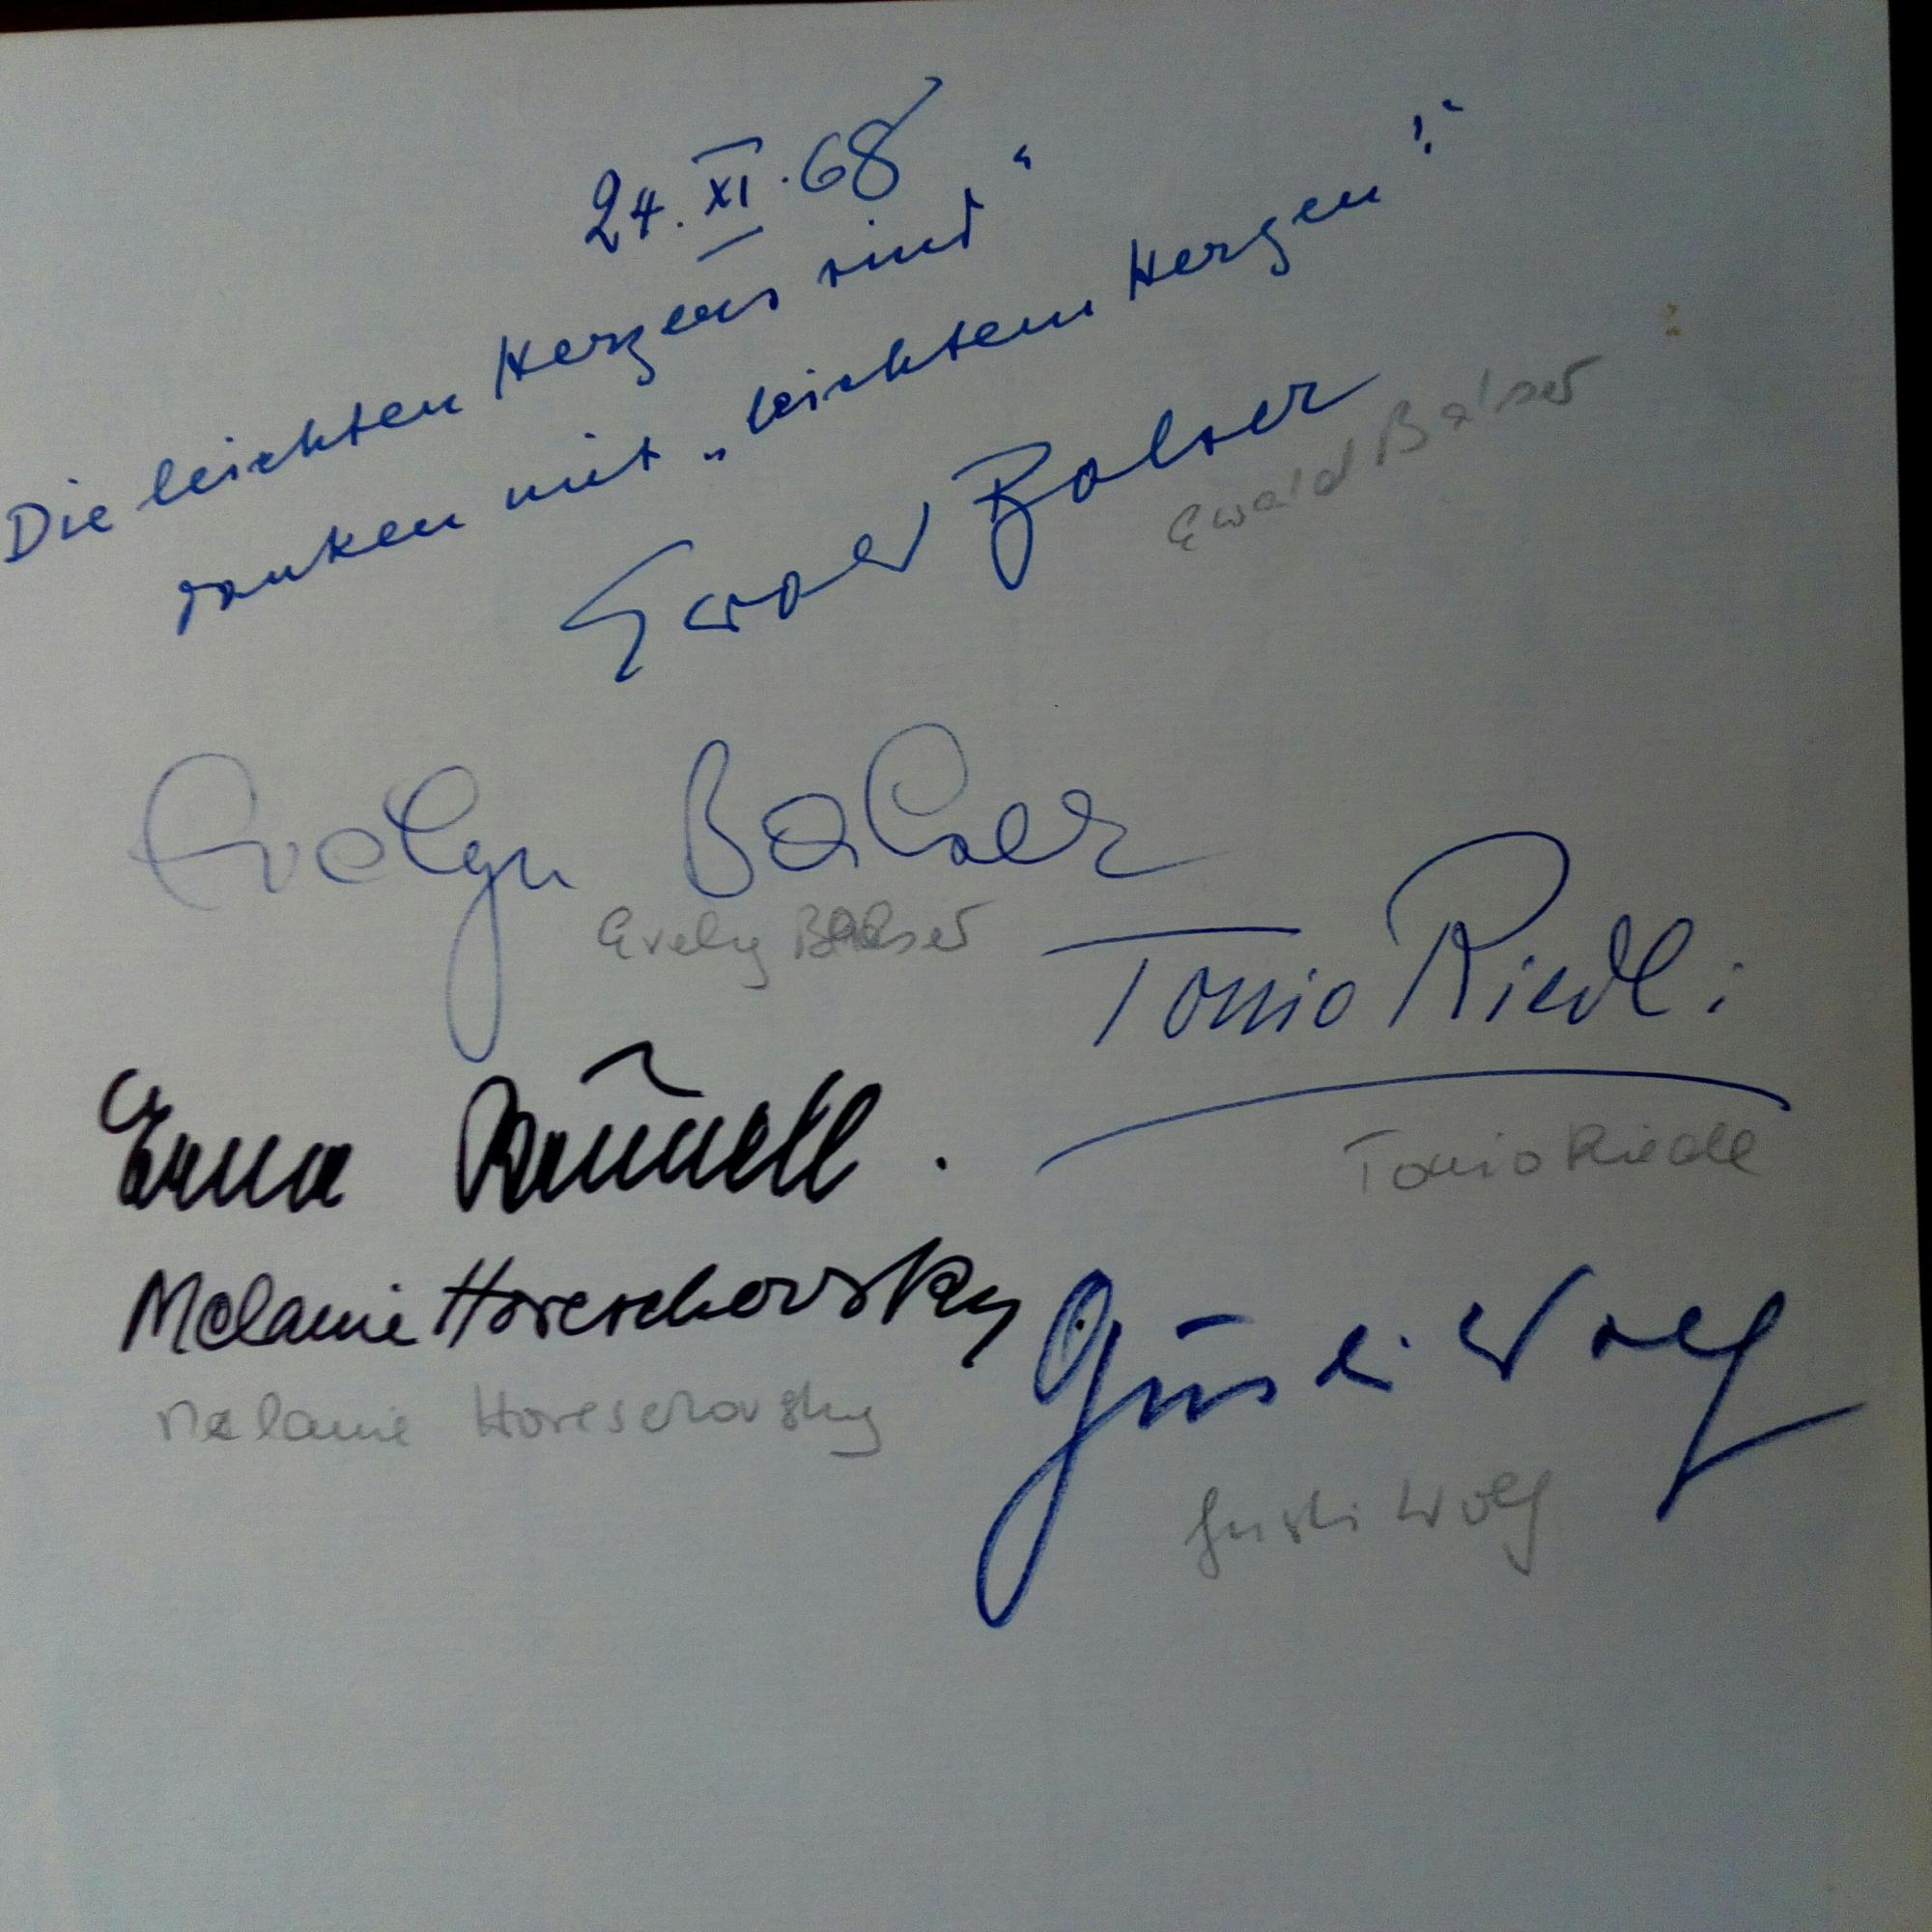 24. XI. 68
Die leichten Herzens sind“
danken mit „leichtem Herzen“!
Ewald Balser
Ewald Balser
Evelyn Balser
Evelyn Balser
Tonio Riedl
Tonio Riedl
Erna
Melanie Horeschovsky
Melanie Horeschovsky
Gusti Wolf
Gusti Wolf